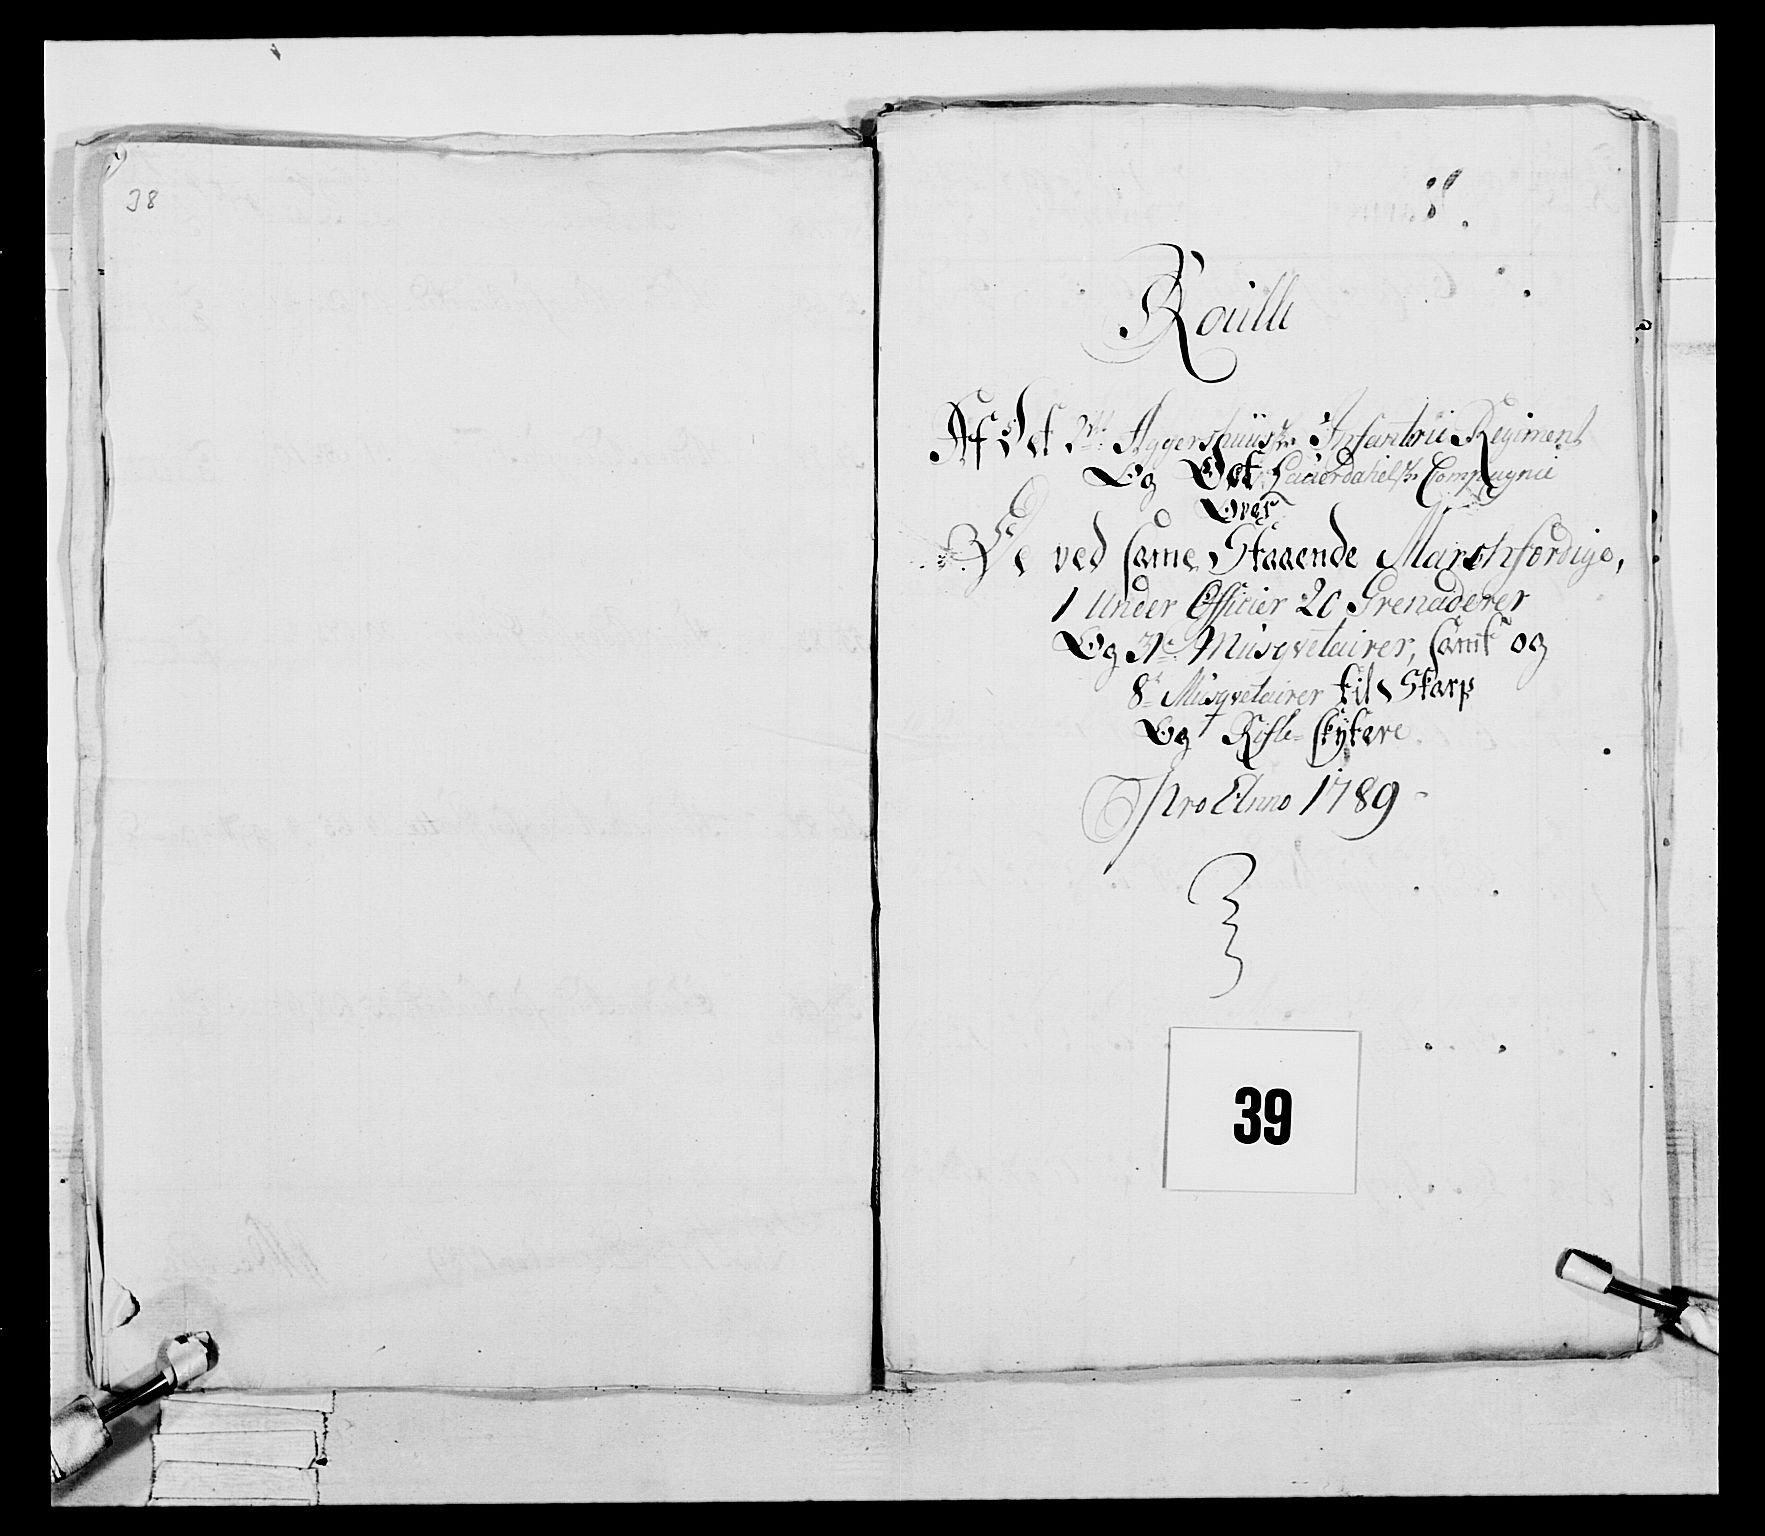 38
8.
Roulle
Af Det 2det Aggershuuske Infanterie Regiment
Og Det Compagnie
Over
De ved same Staaende Marschfærdige,
1 Under Officier 20 Grenaderer
Og Musqvetairer, samt og
8t Musqvetairer til Skarp
Og Rifle-skytere
Pro Anno 1789
39